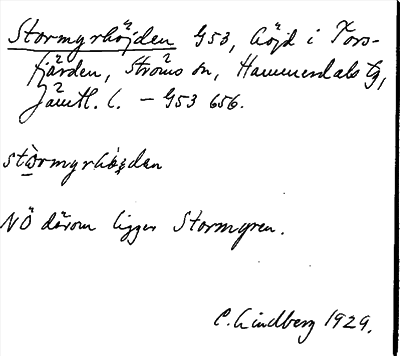 Stormyrhöjden G53, höjd i Fors-
fjärden, Ströms sn, Hammerdals tg,
Jämtl. l. – G53 656.
NÖ därom ligger Stormyren.
C. Lindberg 1929.